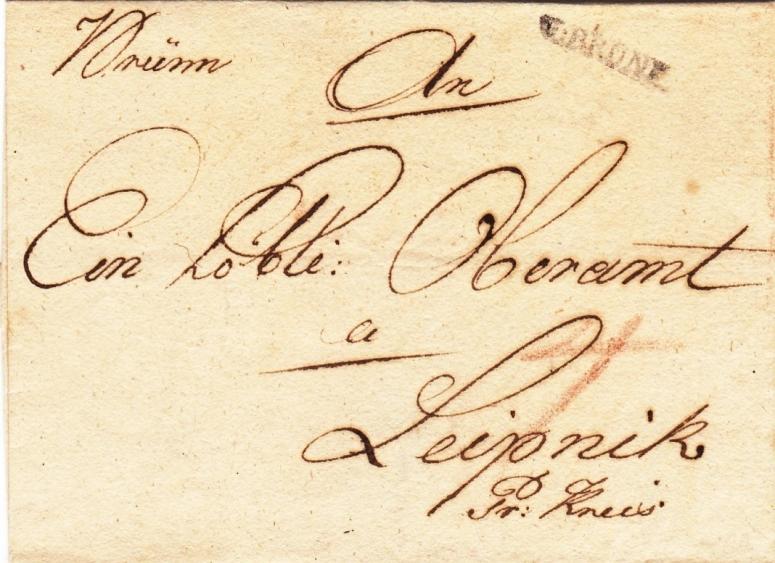 Brünn
V. BRÜNN
An
Ein Löbli: Oberamt
a
Leipnik
Pr: Kreis